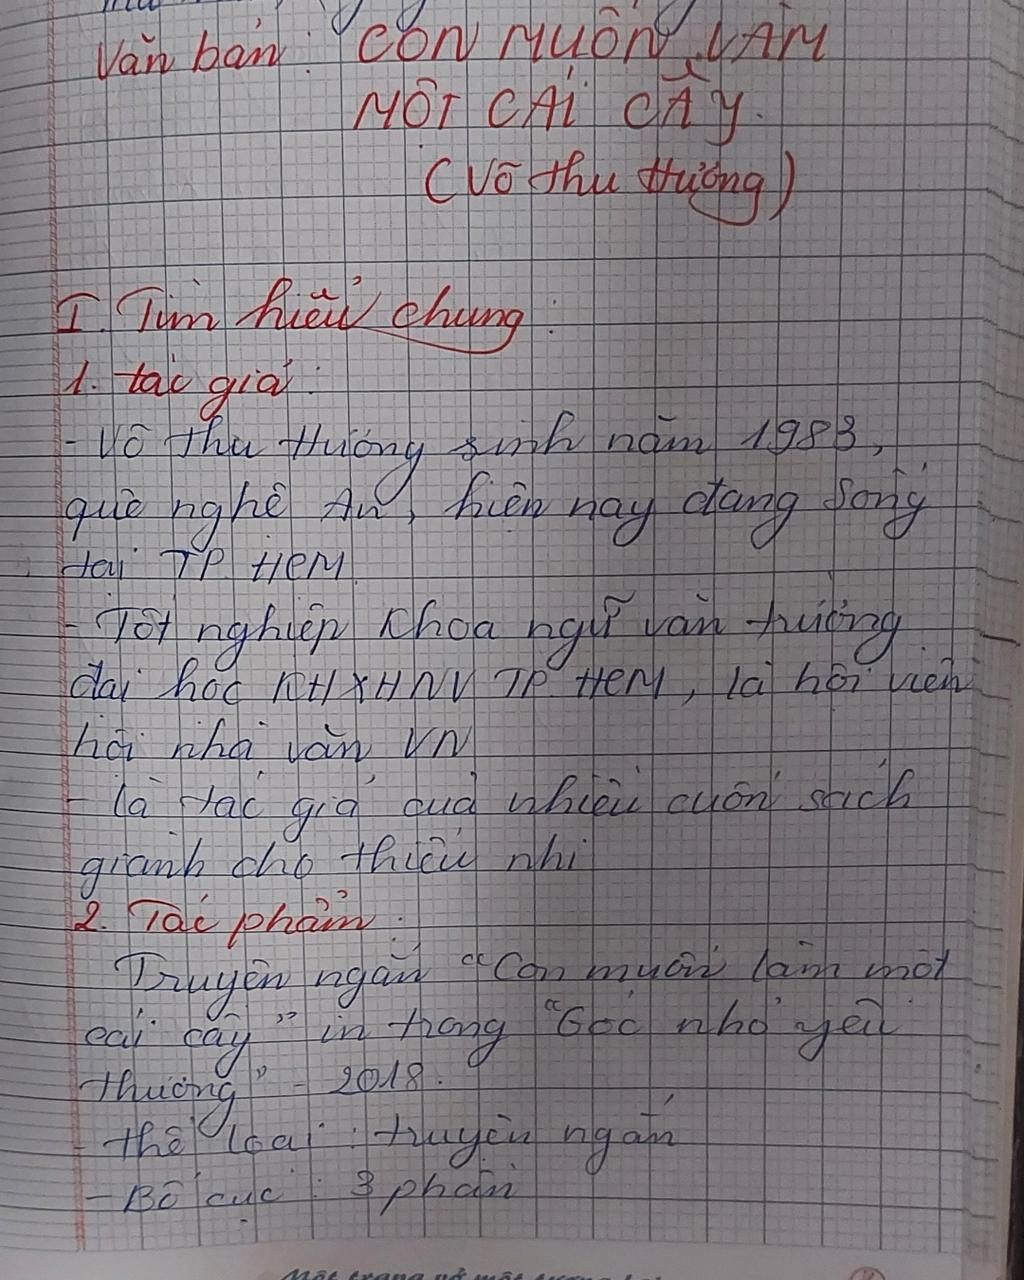 Văn bản: CON MUỐN LÀM
MỘT CÁI CÂY.
(Võ Thu Hương)
I. Tìm hiểu chung:
1. tác giả:
- Võ Thu Hương sinh năm 1983,
quê nghệ An, hiện nay đang sống
tại TP. HCM.
- Tốt nghiệp khoa ngữ văn trường
đại học KHXHNV TP HCM, là hội viên
hội nhà văn VN
- là tác giả của nhiều cuốn sách
giành cho thiếu nhi
2. Tác phẩm:
Truyện ngắn "Con muốn làm một
cái cây" in trong "Góc nhỏ yêu
thương" - 2018.
- thể loại: truyện ngắn
- Bố cục: 3 phần